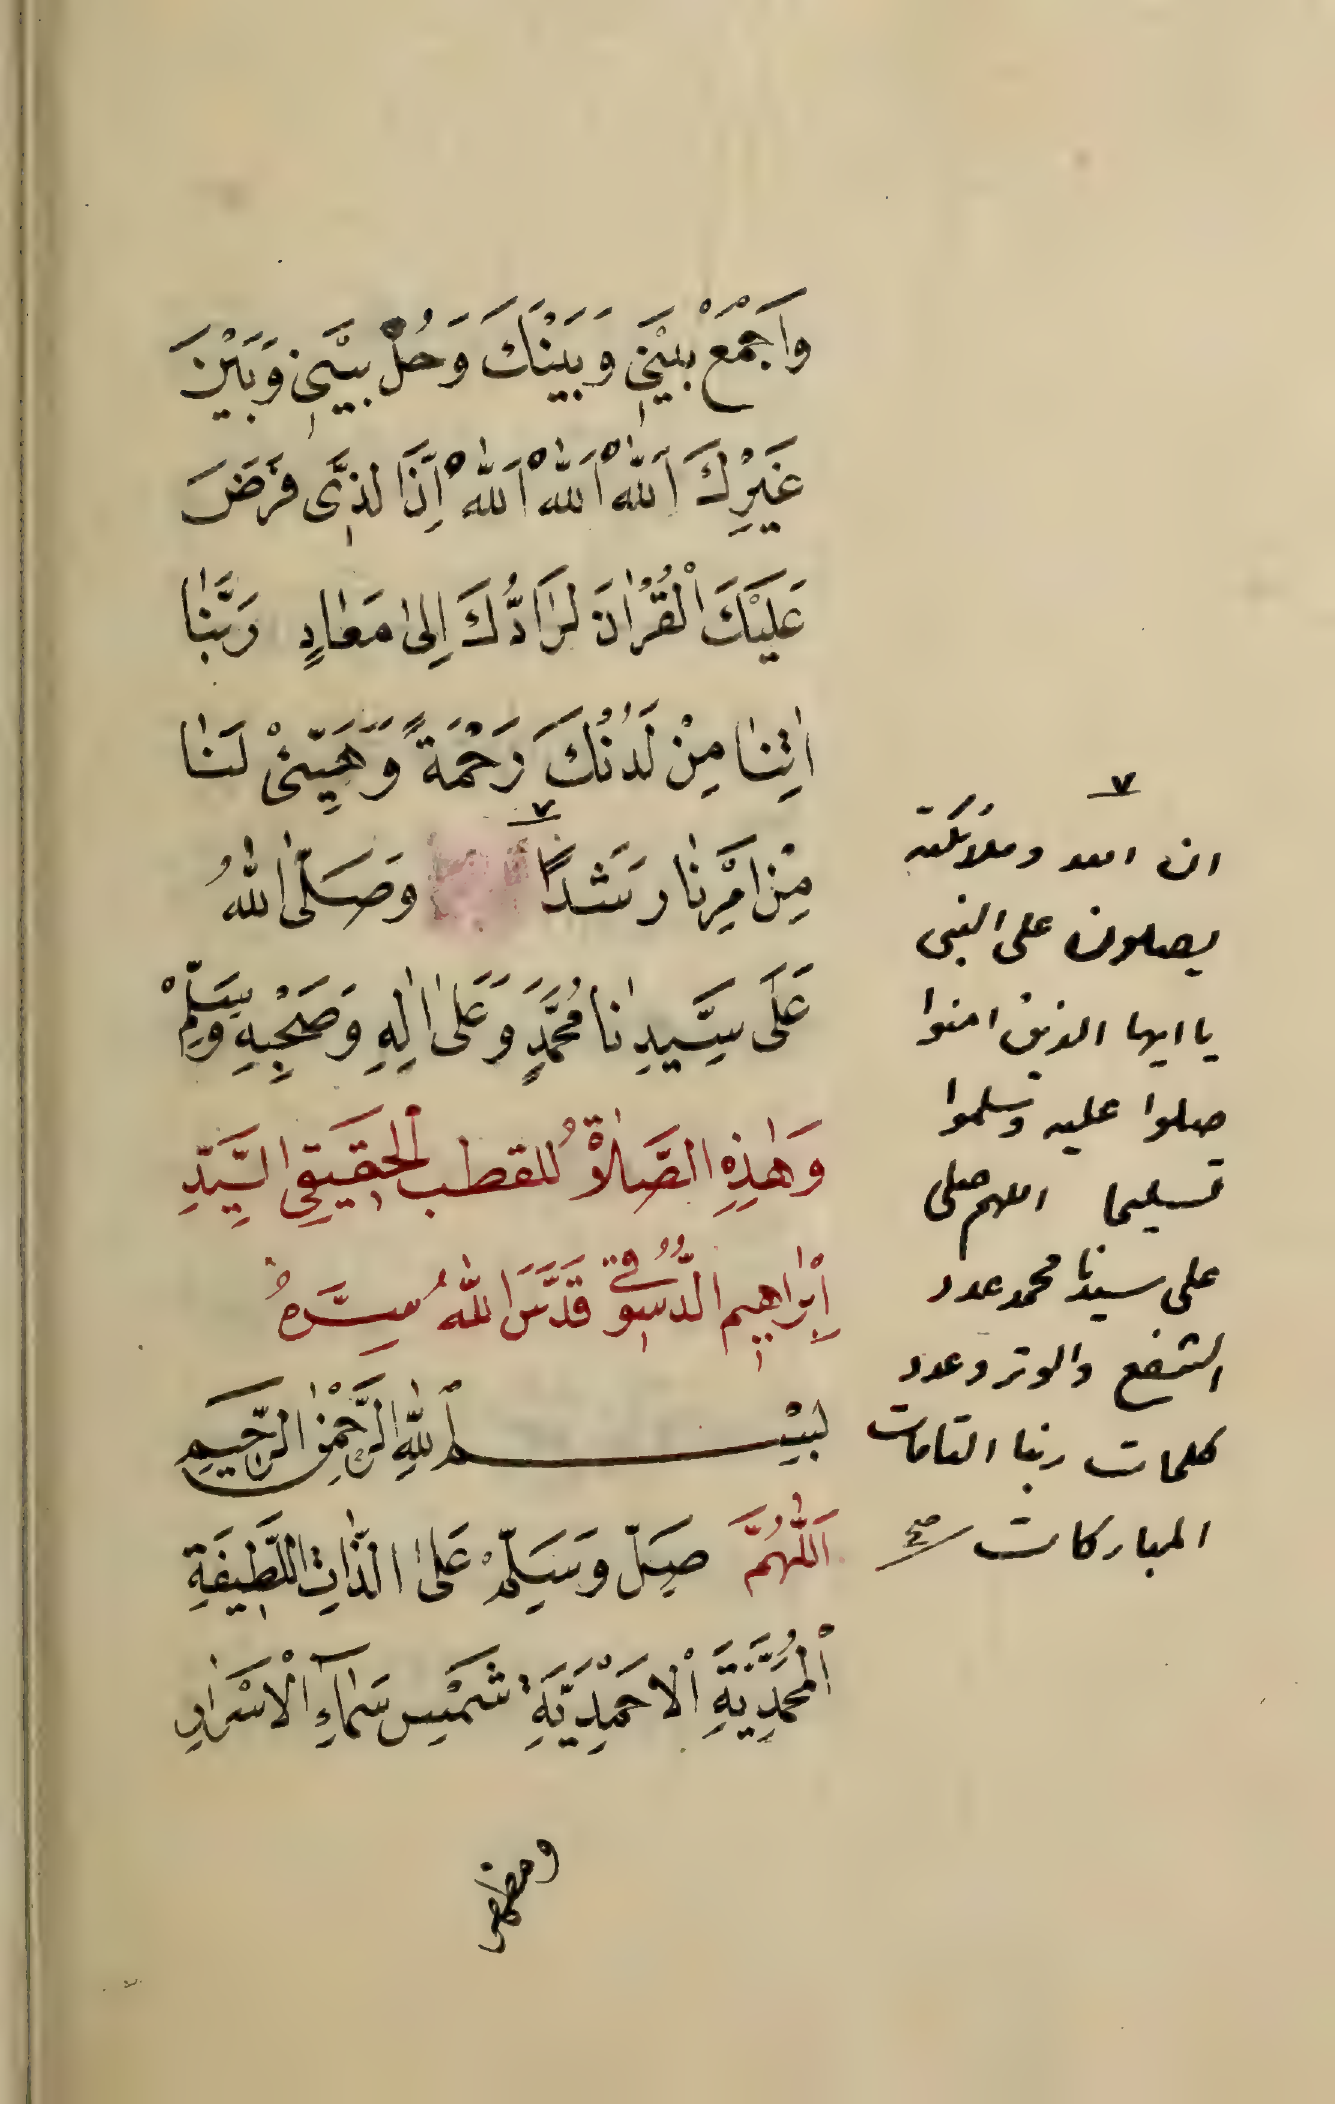 وَاَجْمَعْ بَيْنِى وَبَيْنَكَ وَحُلْ بَيْنِى وَبَيْنَ
غَيْرِكَ اَللّٰهْ اَللّٰهْ اَللّٰهْ اِنَّ الَّذِى فَرَضَ
عَلَيْكَ الْقُرْاٰنَ لَرَادُّكَ اِلٰى مَعَادٍ رَبَّنَا
اٰتِنَا مِنْ لَدُنْكَ رَحْمَةً وَهَيِّئْ لَنَا
مِنْ اَمْرِنَا رَشَدًا ٧ وَصَلَّى اللّٰهُ
عَلَى سَيِّدِنَا مُحَمَّدٍ وَعَلٰى اٰلِهِ وَصَحْبِهِ وَسَلِّمْ
وَهٰذِهِ الصَّلَاةُ للقطب الْحَقِيقِى السَّيِّدِ
اِبْرَاهِيم الدُّسُوقِى قَدَّسَ اللّٰهُ سِرَّهُ
بِسْمِ اللّٰهِ الرَّحْمٰنِ الرَّحِيمِ
اَللّٰهُمَّ صَلِّ وَسَلِّمْ عَلَى الذَّاتِ اللَّطِيفَةِ
الْمُحَمَّدِيَّةِ الْاَحْمَدِيَّةِ شَمْسِ سَمَآءِ الْاَسْرَارِ
ومظهر
٧
ان الله وملائكته
يصلون على النبى
يا ايها الذين امنوا
صلوا عليه وسلموا
تسليما اللهم صلى
على سيدنا محمد عدد
الشفع والوتر وعدد
كلمات ربنا التامات
المباركات صح